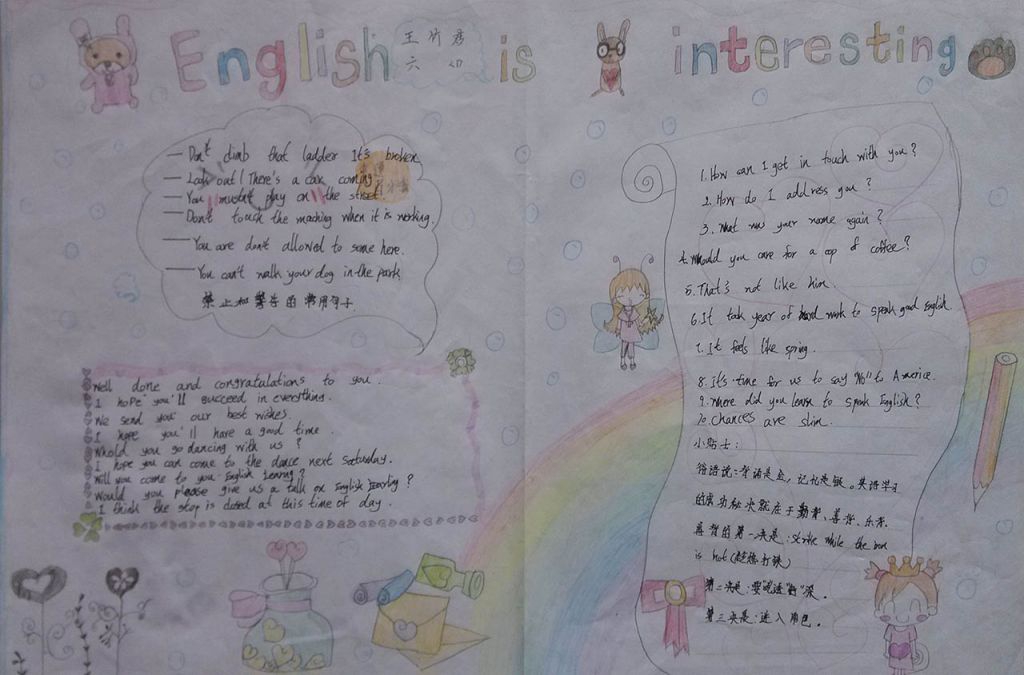 English is interesting
王
六
— Don't climb that ladder It's broken
— Look out! There's a car coming
— You mustn't play on the street.
— Don't touch the maching when it is working.
— You are don't allowed to some here.
— You can't walk your dog in the park
禁止和警告的常用句子.
Well done and congratulations to you.
I hope you'll succeed in everything.
We send you our best wishes.
I hope you'll have a good time.
Whold you go dancing with us?
I hope you can come to the dance next Saturday.
Will you come to you English Evening?
Would you please give us a talk on English ?
I think the stop is closed at this time of day.
1. How can I get in touch with you?
2. How do I address you?
3. What was your name again?
4. Whould you care for a cop of coffee?
5. That's not like him.
6. It took year of hard work to speak good English
7. It feels like spring.
8. It's time for us to say "No" to America.
9. Where did you learn to speak English?
10. Chances are slim.
小贴士:
俗语说:背诵是金,记忆是银。英语学习
的成功秘诀就在于勤学、善学、乐学.
善学的第一决是:strike while the iron
is hot(趁热打铁)
第二决是:要"吃透""嚼"深。
第三决是:进入角色。